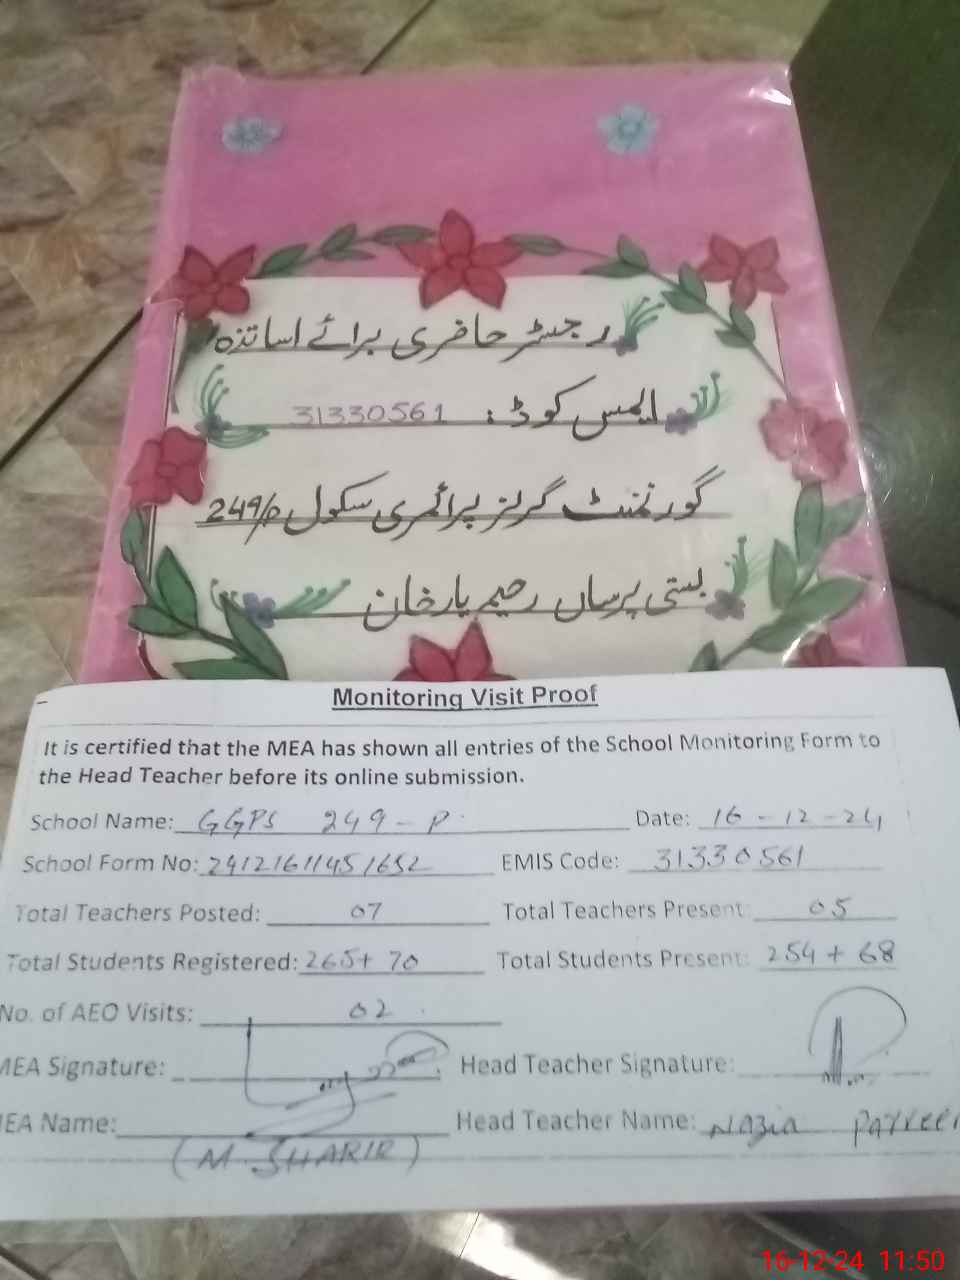 رجسٹر حاضری برائے اساتذہ
ایمس کوڈ: 31330561
گورنمنٹ گرلز پرائمری سکول 249/P
بستی پرساں رحیم یار خان
Monitoring Visit Proof
It is certified that the MEA has shown all entries of the School Monitoring Form to
the Head Teacher before its online submission.
School Name: GGPS 249-P Date: 16-12-24
School Form No: 24121611451652 EMIS Code: 31330561
Total Teachers Posted: 07 Total Teachers Present: 05
Total Students Registered: 265+ 70 Total Students Present: 254 + 68
No. of AEO Visits: 02
MEA Signature: Head Teacher Signature:
MEA Name: Head Teacher Name: Nazia
(M. )
16-12-24 11:50